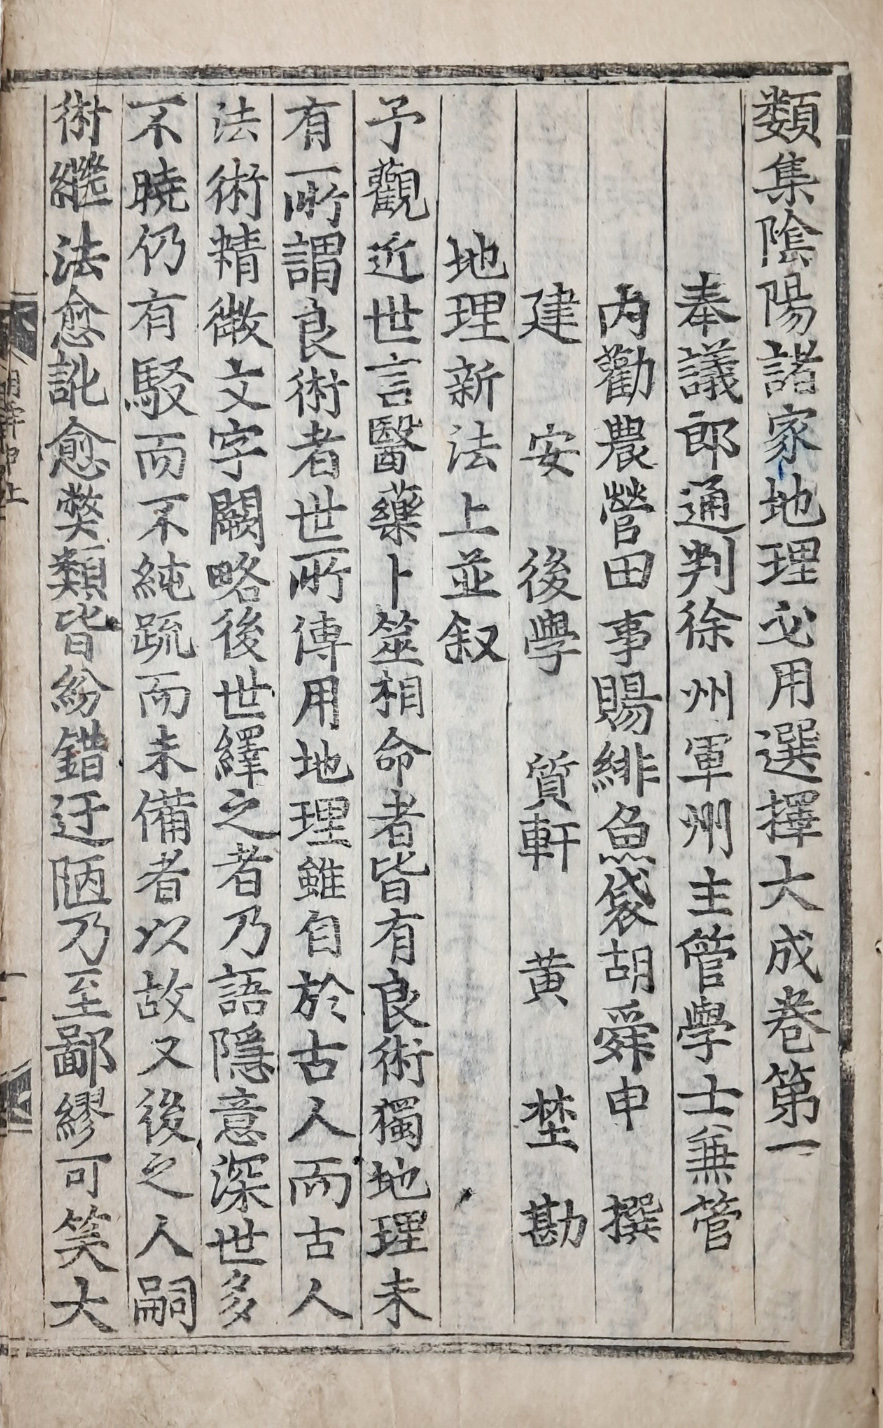 類集陰陽諸家地理必用選擇大成卷第一
奉議郎通判徐州軍州主管學士兼管
內勸農營田事賜緋魚袋胡舜申 撰
建安 後學 質軒 黃埜 勘
地理新法上並叙
予觀近世言醫藥卜筮相命者皆有良術獨地理未
有所謂良術者世所傳用地理雖自於古人而古人
法術精微文字闕略後世繹之者乃語隱意深世多
不曉仍有駁而不純疏而未備者以故又後之人嗣
術繼法愈訛愈弊類皆紛錯迂陋乃至鄙繆可笑大